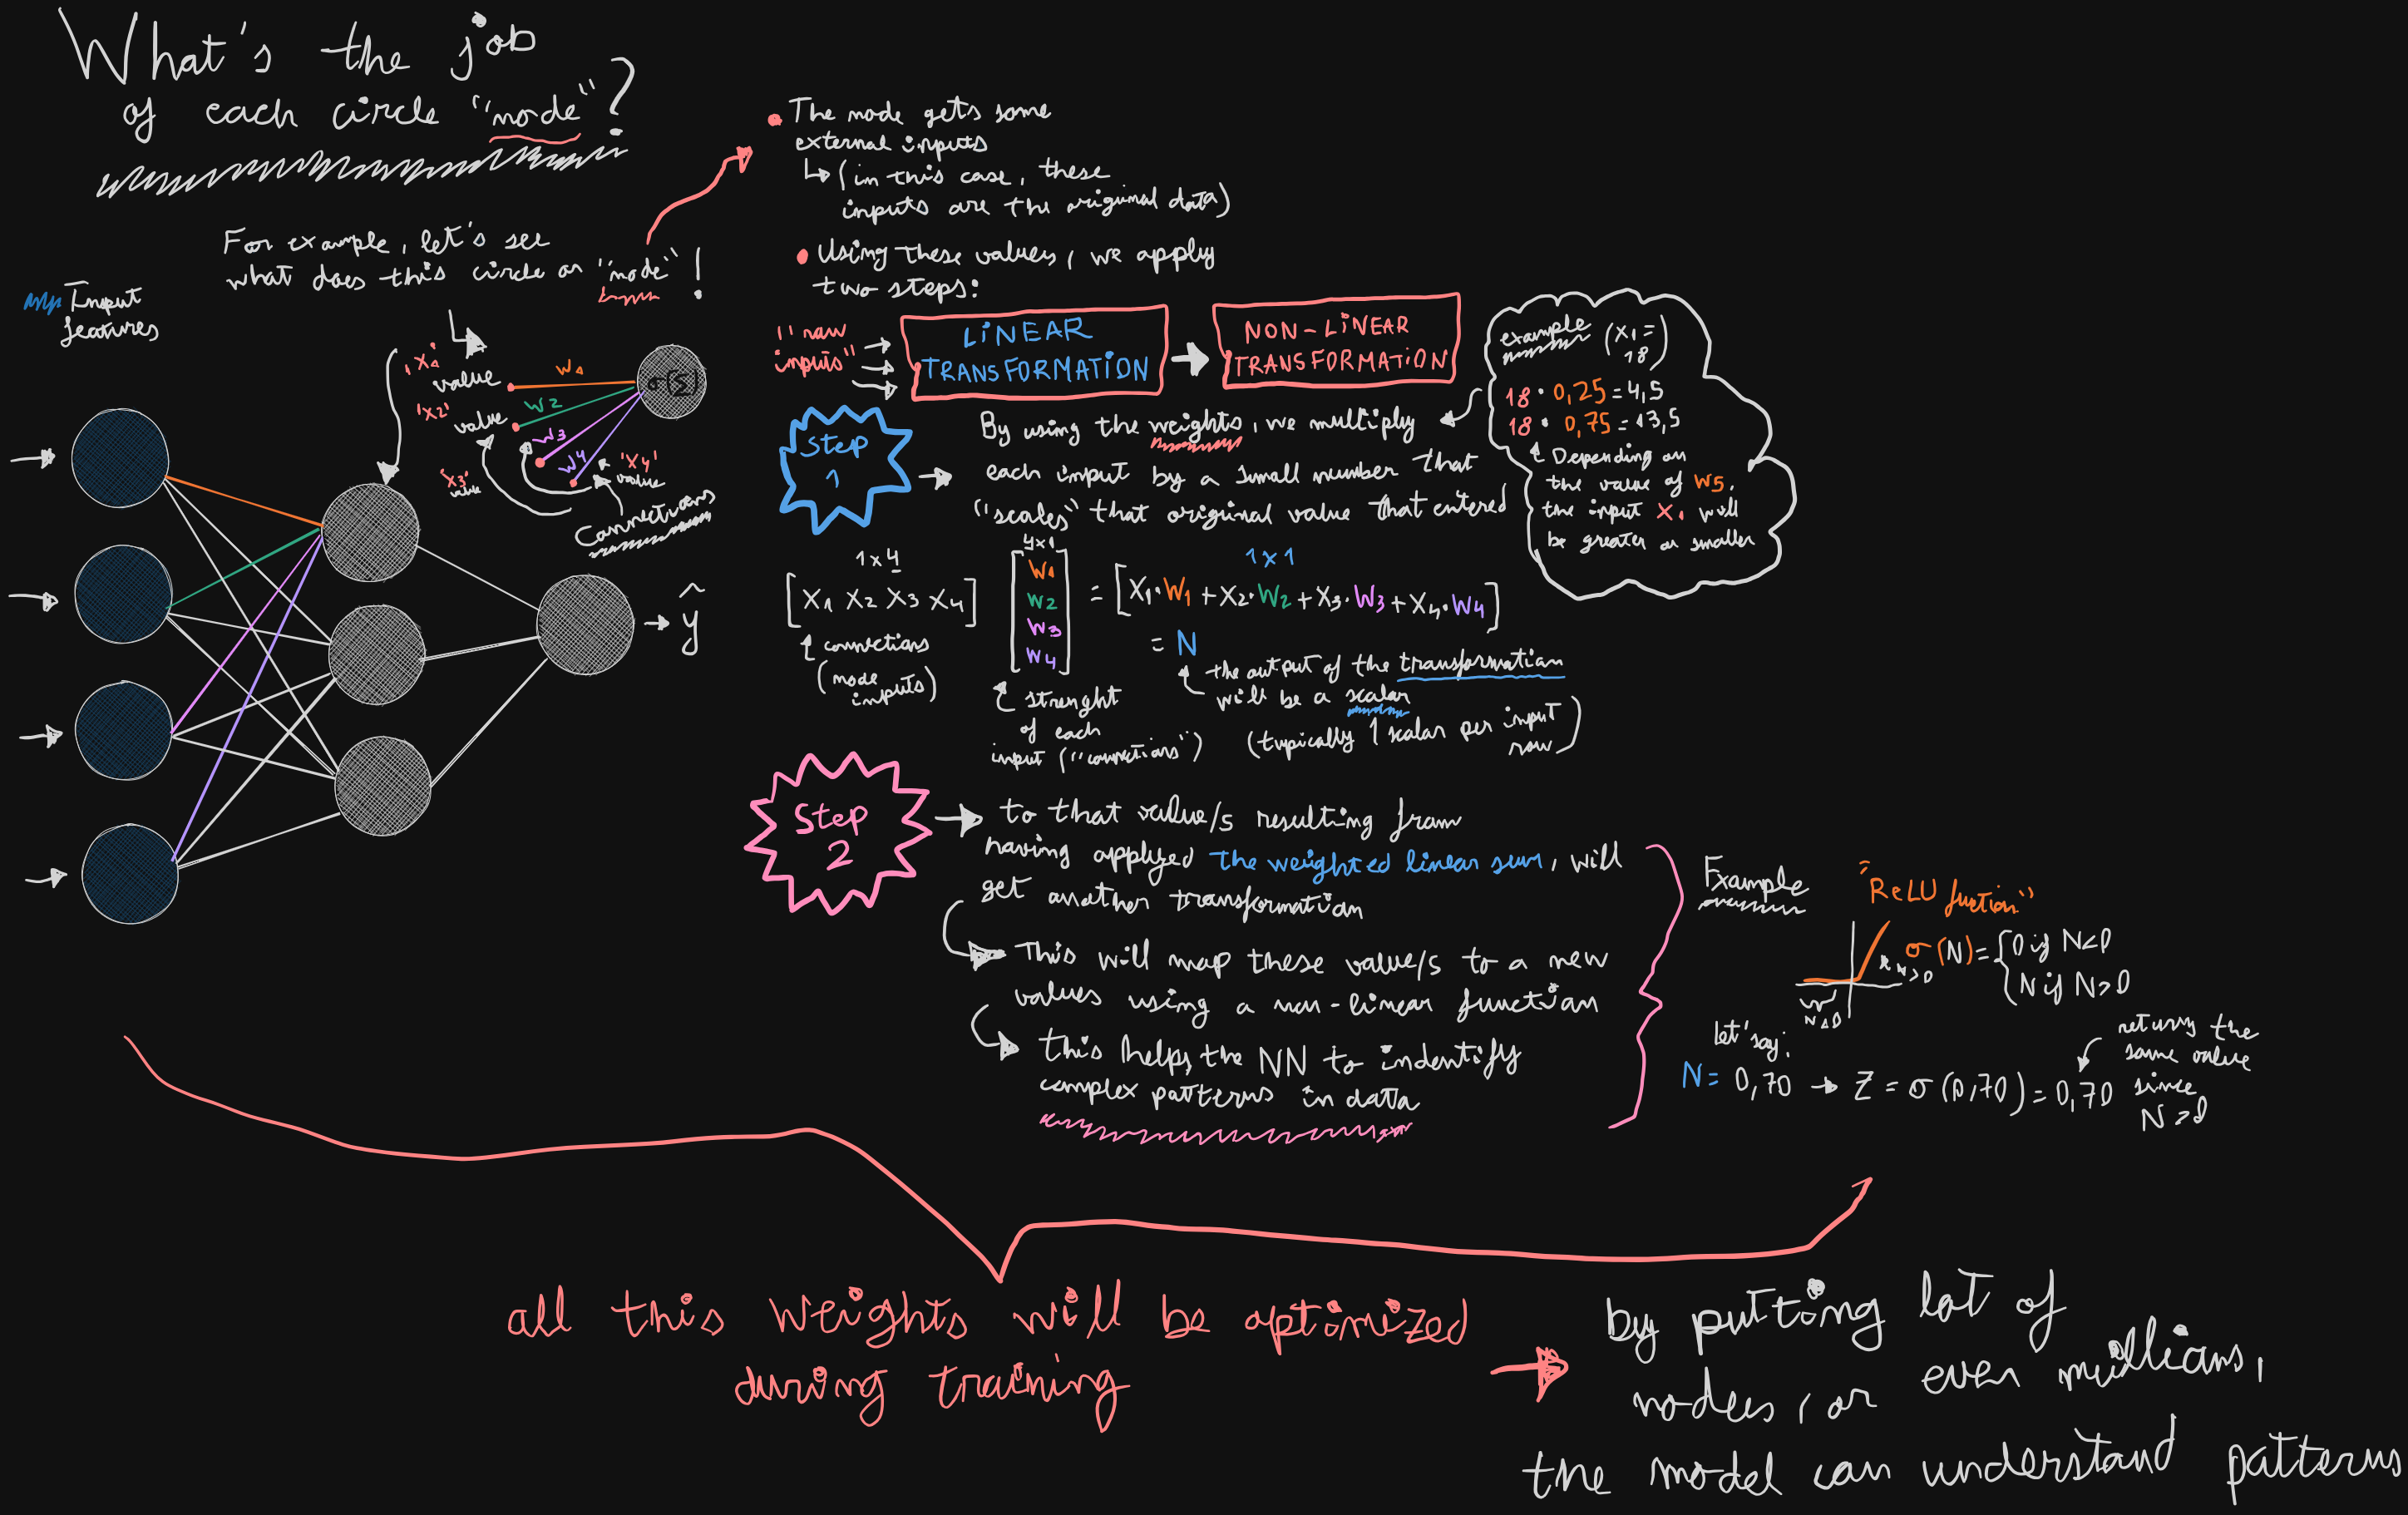 What's the job
of each circle "node"?
For example, let's see
what does this circle or "node" !
Input
features
'X1'
value
W1
'X2'
value
W2
W3
'X3'
value
W4
'X4'
value
Connections
σ(Σ)
ŷ
The node gets some
external inputs
(in this case, these
inputs are the original data)
Using these values, we apply
two steps:
"raw
inputs"
LINEAR
TRANSFORMATION
NON-LINEAR
TRANSFORMATION
Step
1
By using the weights, we multiply
each input by a small number that
"scales" that original value that entered
example (X1 =
18)
18 · 0,25 = 4,5
18 · 0,75 = 13,5
Depending on
the value of W5,
the input X1 will
be greater or smaller
1x4
[X1 X2 X3 X4]
connections
(node
inputs)
4x1
W1
W2
W3
W4
strenght
of each
input ("connections")
1x1
= [X1·W1 + X2·W2 + X3·W3 + X4·W4]
= N
the output of the transformation
will be a scalar
(typically 1 scalar per input
row)
Step
2
to that value/s resulting from
having applyed the weighted linear sum, will
get another transformation
This will map these value/s to a new
values using a non-linear function
this helps the NN to indentify
complex patterns in data
Example
"ReLU fuction"
σ(N) = {0 if N<0
{N if N>0
N>0
N<0
let'say:
N = 0,70 → Z = σ(0,70) = 0,70
returns the
same value
since
N>0
all this weights will be optimized
during training
by putting lot of
nodees, or even millions,
the model can understand patterns